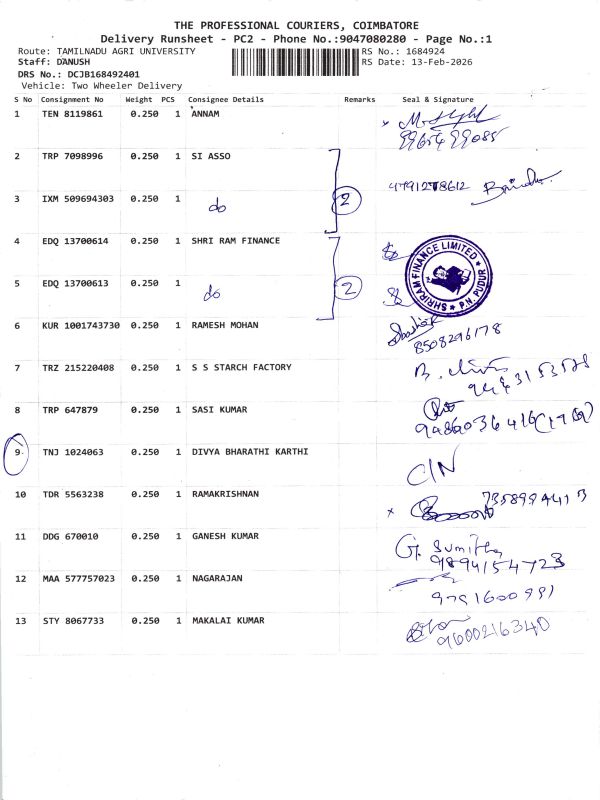 THE PROFESSIONAL COURIERS, COIMBATORE
Delivery Runsheet - PC2 - Phone No.:9047080280 - Page No.:1
Route: TAMILNADU AGRI UNIVERSITY RS No.: 1684924
Staff: DANUSH RS Date: 13-Feb-2026
DRS No.: DCJB168492401
Vehicle: Two Wheeler Delivery
S No Consignment No Weight PCS Consignee Details Remarks Seal & Signature
1 TEN 8119861 0.250 1 ANNAM
2 TRP 7098996 0.250 1 SI ASSO
3 IXM 509694303 0.250 1 do 2
4 EDQ 13700614 0.250 1 SHRI RAM FINANCE
SHRIRAM FINANCE LIMITED P.N. PUDUR
5 EDQ 13700613 0.250 1 do 2
6 KUR 1001743730 0.250 1 RAMESH MOHAN
8508296178
7 TRZ 215220408 0.250 1 S S STARCH FACTORY
8 TRP 647879 0.250 1 SASI KUMAR
9 TNJ 1024063 0.250 1 DIVYA BHARATHI KARTHI C/N
10 TDR 5563238 0.250 1 RAMAKRISHNAN
11 DDG 670010 0.250 1 GANESH KUMAR G. Sumithra
9894154723
12 MAA 577757023 0.250 1 NAGARAJAN
9791600991
13 STY 8067733 0.250 1 MAKALAI KUMAR
9600216340